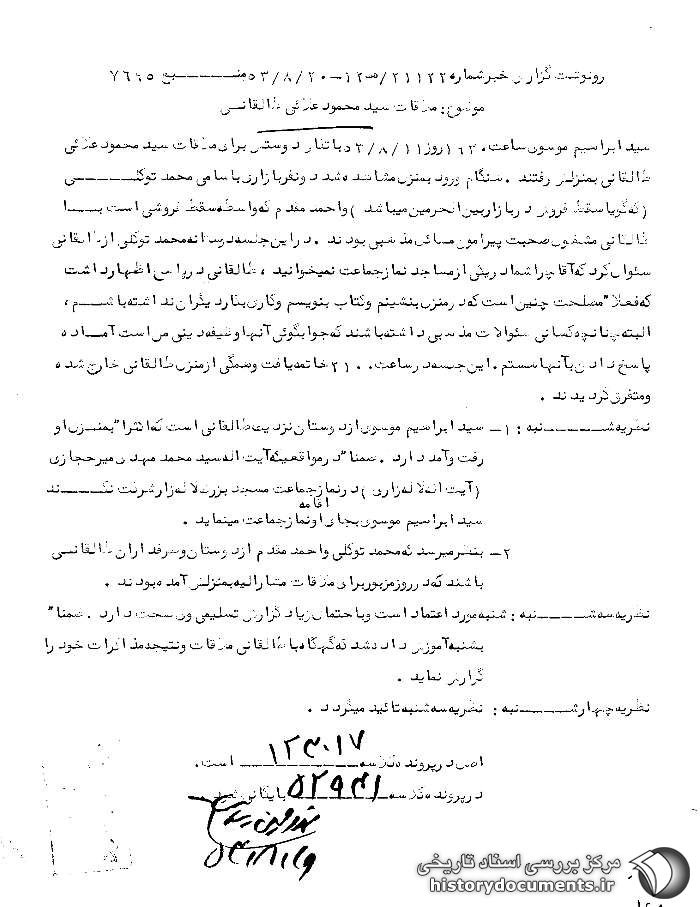 رونوشت گزارش خبر شماره ۲۱۱۲۲/ه‍ ۱۲ - ۵۳/۸/۲۰ منبع ۷۶۶۵
موضوع: ملاقات سید محمود علائی طالقانی
سید ابراهیم موسوی ساعت ۱۶۳۰ روز ۵۳/۸/۱۱ باتفاق دوستش برای ملاقات سید محمود علائی
طالقانی بمنزلش رفتند . هنگام ورود بمنزل مشاهده شد دو نفر بازاری باسامی محمد توکلی
(که گویا سقط فروش در بازار بین الحرمین میباشد ) واحمد مقدم که واسطه سقط فروشی است با
طالقانی مشغول صحبت پیرامون مسائل مذهبی بودند . در این جلسه دوستانه محمد توکلی از طالقانی
سئوال کرد که آقا چرا شما در یکی از مساجد نماز جماعت نمیخوانید ، طالقانی در پاسخ اظهار داشت
که فعلا" مصلحت چنین است که در منزل بنشینم وکتاب بنویسم وکاری بکار دیگران نداشته باشم ،
البته چنانچه کسانی سئوالات مذهبی داشته باشند که جوابگوئی آنها وظیفه دینی من است آماده
پاسخ دادن بآنها هستم . این جلسه در ساعت ۲۱۰۰ خاتمه یافت وهمگی از منزل طالقانی خارج شده
ومتفرق گردیدند .
نظریه شنبه : ۱- سید ابراهیم موسوی از دوستان نزدیک طالقانی است که اکثرا" بمنزل او
رفت وآمد دارد . ضمنا" در مواقعیکه آیت اله سید محمد مهدی میرحجازی
(آیت اله لاله زاری ) در نماز جماعت مسجد بزرگ لاله زار شرکت نکند
سید ابراهیم موسوی بجای او اقامه نماز جماعت مینماید .
۲- بنظر میرسد که محمد توکلی واحمد مقدم از دوستان وطرفداران طالقانی
باشند که در روز مزبور برای ملاقات مشارالیه بمنزلش آمده بودند .
نظریه سه شنبه : شنبه مورد اعتماد است وباحتمال زیاد گزارش تسلیمی وی صحت دارد . ضمنا"
بشنبه آموزش داده شد که گهگاه با طالقانی ملاقات ونتیجه مذاکرات خود را
گزارش نماید .
نظریه چهارشنبه : نظریه سه شنبه تائید میگردد .
اصل در پرونده کلاسه ۱۲۳۰۱۷ است .
در پرونده کلاسه ۵۲۹۳۱ بایگانی شود
مرکز بررسی اسناد تاریخی
historydocuments.ir